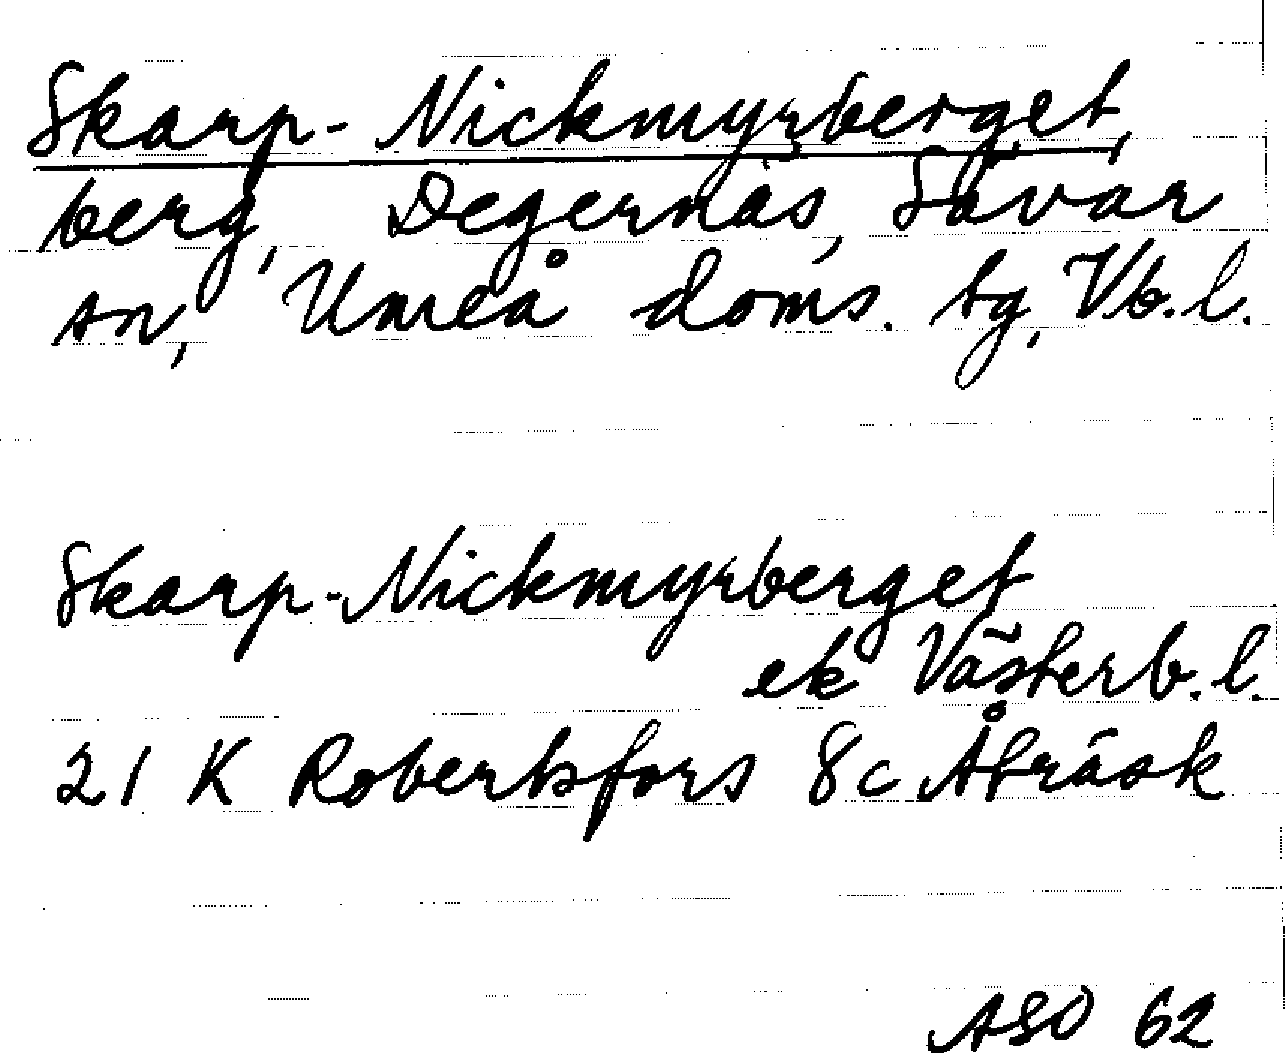 Skarp-Nickmyrberget,
berg, Degernäs, Sävar
sn, Umeå doms. tg, Vb.l.
Skarp-Nickmyrberget
ek Västerb.l.
21 K Robertsfors 8c Åträsk
ASO 62